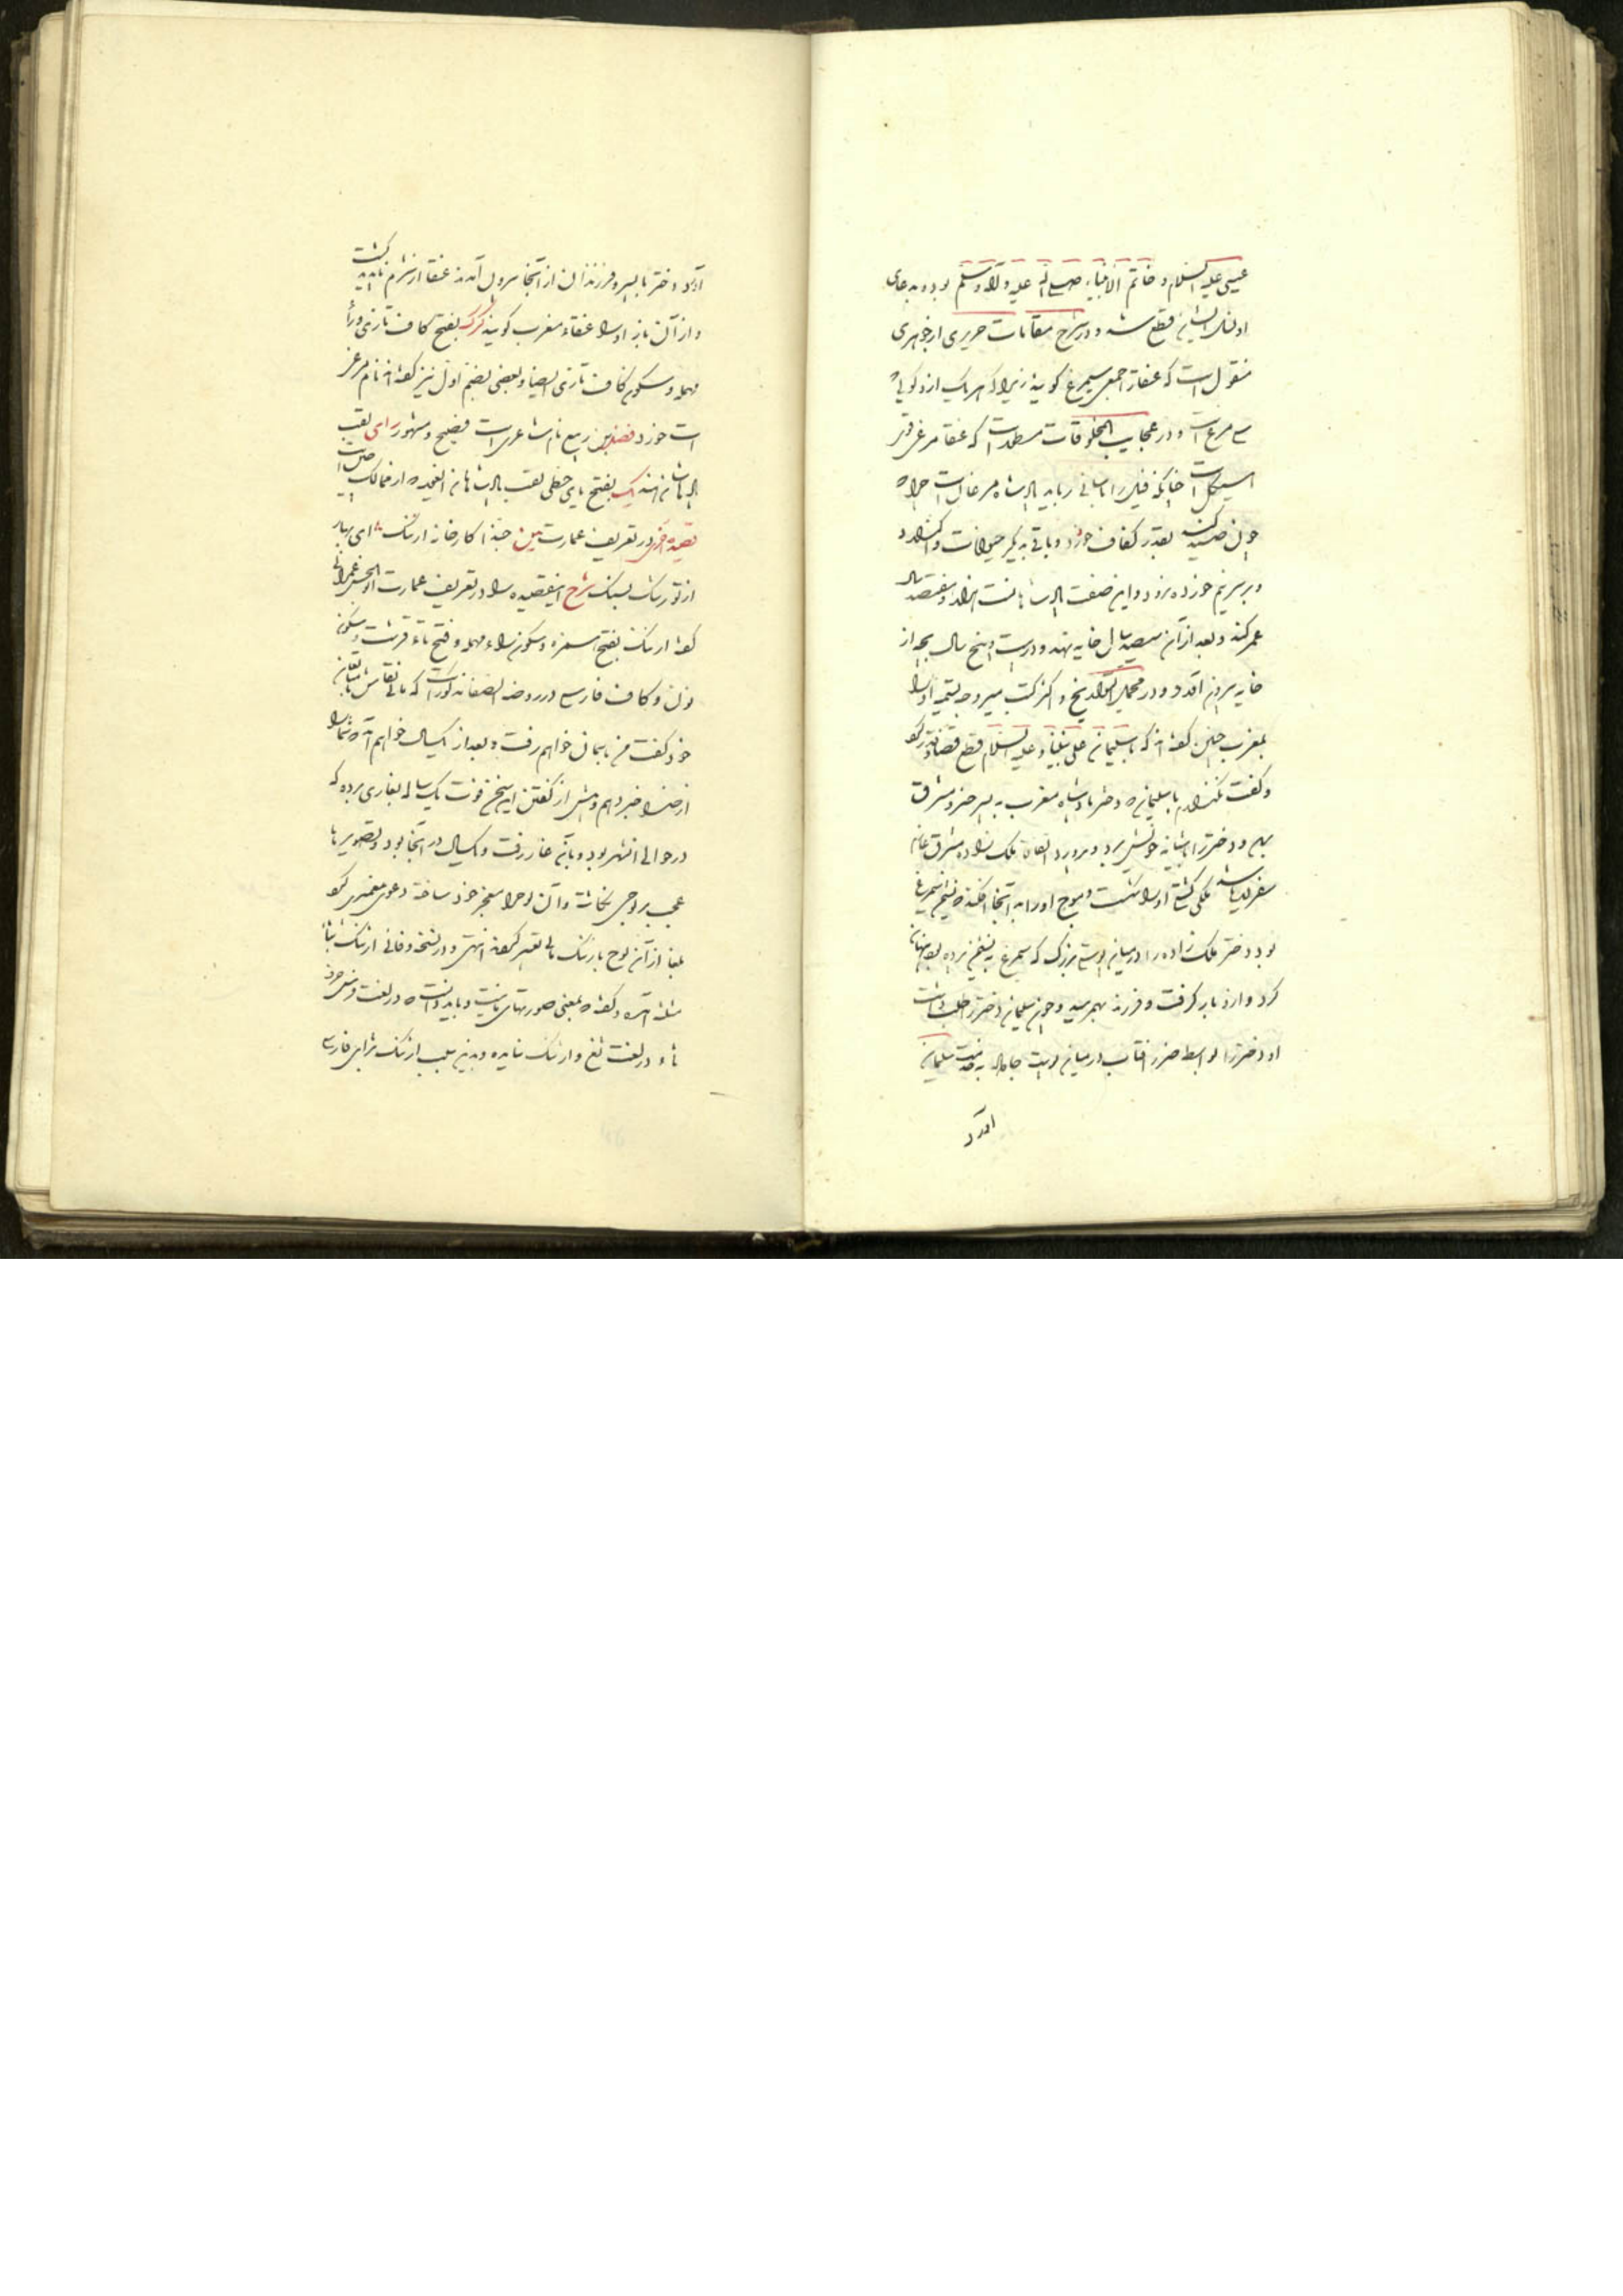 عیسی علیه السلام و خاتم الانبیاء صلی الله علیه و آله و سلم بوده بدعای
او نسل ایشان قطع شد و در شرح مقامات حریری از جوهری
منقول است که عنقا را جمعی سیمرغ گویند زیرا که هر یک ازو گویی
سی مرغ است و در عجایب المخلوقات مسطور است که عنقا مرغی قوی
هیکل است چنانکه فیل را باسانی رباید پادشاه مرغان است
چون صید کند بقدر کفاف خورد و باقی بدیگر حیوانات واگذارد
و بر سر نیم خورده نرود و این صفت پادشاهانست هزار و هفتصد سال
عمر کند و بعد از آن سیصد سال خایه نهد و در بیست و پنج سال بچه از
خایه بیرون آید و در مجمل التواریخ و اکثر کتب سیر وجه تسمیه او را
بمغرب چنین گفته اند که با سلیمان علی نبینا و علیه السلام قطع قضا و قدر کرد
و گفت نگذارم با سلیمان دختر پادشاه مغرب به پسر مشرق
و دختر را باشیانه خویش برد و پرورد اتفاقا ملک زاده مشرق
سفر دریا کشتی او را شکست و موج او را به آنجا افکند سیمرغ
بود دختر ملک زاده را در میان پوستی بزرگ که سیمرغ به نشیمن برده بود پنهان
کرد و ازو بار گرفت و فرزند بهم رسید و چون سلیمان دختر را طلب داشت
او دختر را بواسطه ضرر آفتاب در میان پوست جا داد به خدمت سلیمان
آورد
آورد دختر با پسر و فرزندان از آنجا بیرون آمدند عنقا از شرم ناپدید گشت
و از آن باز او را عنقاء مغرب گویند کرک بفتح کاف تازی و راء
مهمله و سکون کاف تازی ایضا و بعضی بضم اول نیز گفته اند نام مرغی
است خورد فضل بن ربیع نام شاعری است فصیح و مشهور رای لقب
پادشاهان هند یک بفتح یای حطی لقب پادشاهان از ممالک
قصیده اخری در تعریف عمارت متن حبذا کارخانه ارتنگ ای بهار
از تو رشک بسنگ شرح این قصیده را در تعریف عمارت ابوالحسن عمرانی
گفته ارتنگ بفتح همزه و سکون راء مهمله و فتح تاء قرشت و سکون
نون و کاف فارسی در روضه الصفا مذکور است که مانی نقاش
خود گفت من باسمان خواهم رفت و بعد از یکسال خواهم آمد شما را
از خدا خبر دهم و پیش از گفتن این سخن قوت یک ساله بغاری برده که
در حوالی انشهر بود و بآن غار رفت و یکسال در آنجا بود و تصویرهای
عجیب بر لوحی نگاشت و آن لوح را معجز خود ساخته دعوی پیغمبری کرد
بعد از آن لوح بارتنگ مانی تعبیر کردند و در نسخه وفائی ارثنگ بثای
مثلثه آمده و گفته بمعنی صورتهای مانیست و باید دانست که در لغت فرس حرف
ثاء و در لغت ثغ و ارثنگ نیامده و بدین سبب ارثنگ بزای فارسی